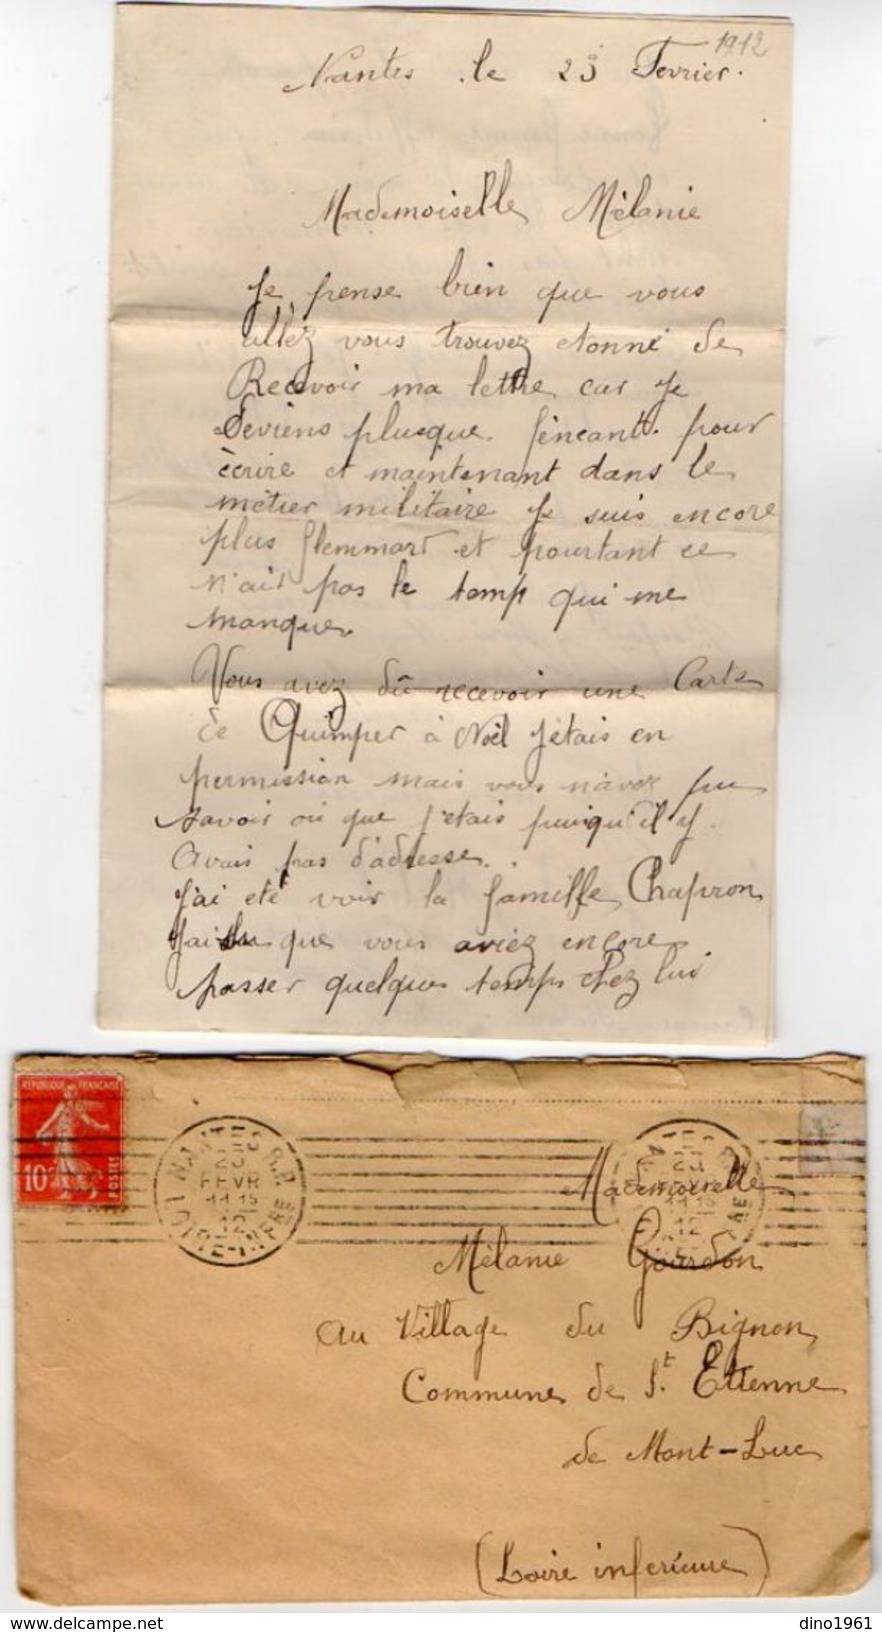 1912
Nantes le 25 Fevrier.
Mademoiselle Mélanie
Je pense bien que vous
allez vous trouvez etonné de
Recevoir ma lettre car je
deviens plusque feneant. pour
ècrire et maintenant dans le
métier militaire Je suis encore
plus flemmard et pourtant ce
n'ait pas le temp qui me
manque.
Vous avez dû recevoir une Carte
de Quimper à Noël J'étais en
permission mais vous n'avez pu
savoir où que j'etais puisqu'il y
Avais pas d'adresse.
J'ai eté voir la famille Chapron
J'ai que vous aviez encore
passer quelques temps chez lui
REPUBLIQUE FRANÇAISE
10c
POSTES
NANTES R.P.
25
FEVR
11 15
12
LOIRE-INFERE
25
11 15
12
Mademoiselle
Mélanie Gourdon
au Village du Bignon
Commune de St. Etienne
de Mont-Luc
(Loire inferieure)
dino1961